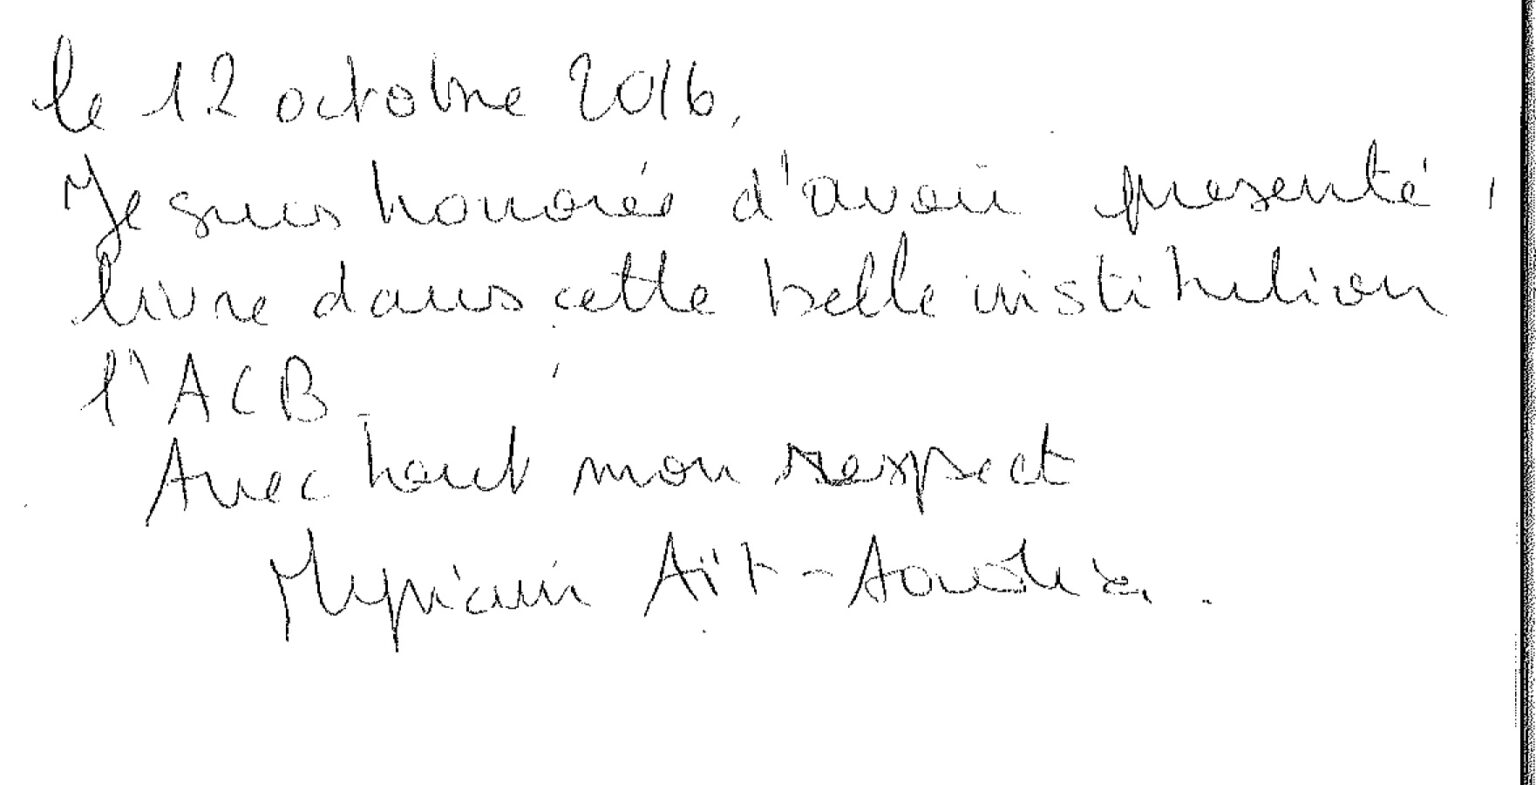 le 12 octobre 2016,
Je suis honorée d'avoir presenté
livre dans cette belle institution
l'ACB.
Avec tout mon respect
Myriam Aït-Aoudia.